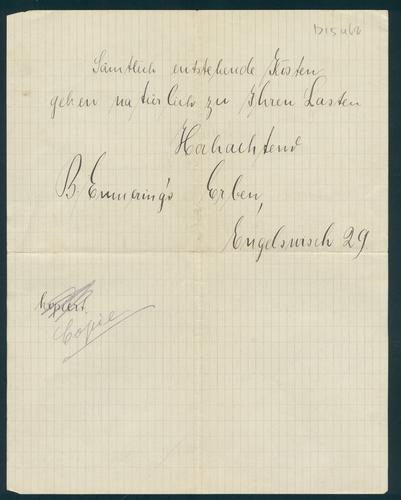 Sämtlich entstehende Kosten
gehen natürlich zu Ihren Lasten
Hochachtend
B. Emmering's Erben,
29
kopiert.
Copie